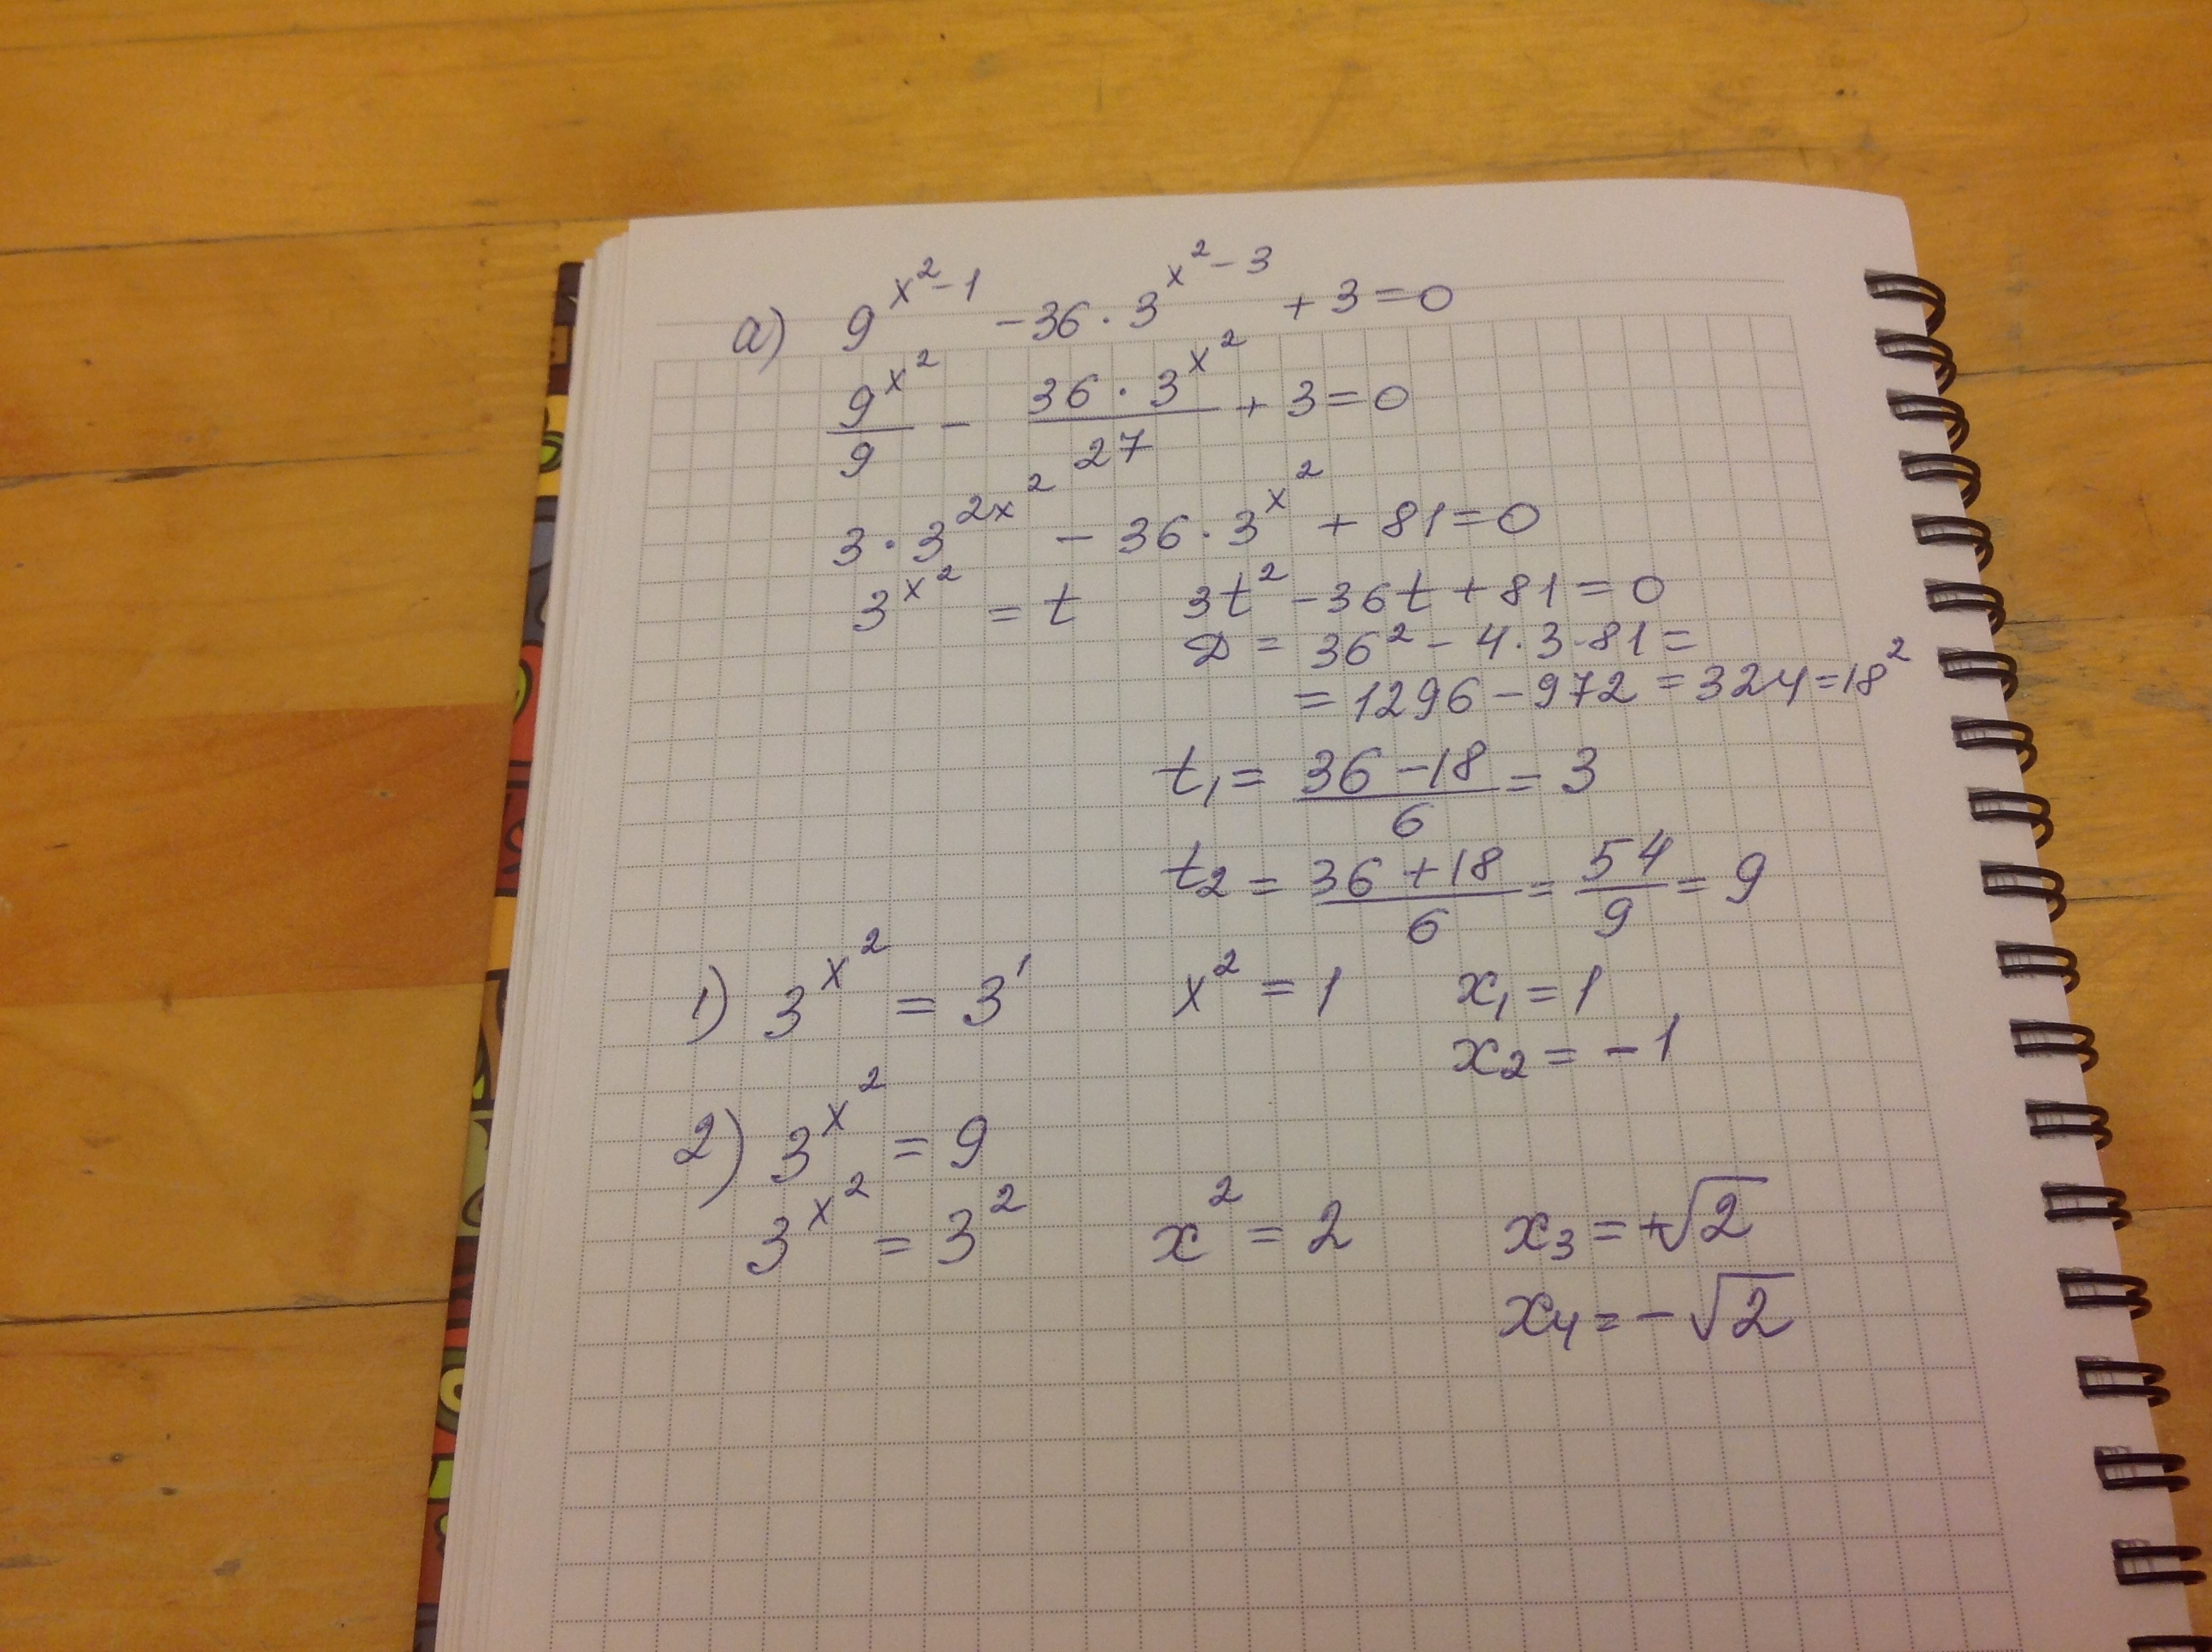 а) 9^(x²-1) - 36 · 3^(x²-3) + 3 = 0
9^(x²)/9 - (36 · 3^(x²))/27 + 3 = 0
3 · 3^(2x²) - 36 · 3^(x²) + 81 = 0
3^(x²) = t 3t² - 36t + 81 = 0
D = 36² - 4 · 3 · 81 =
= 1296 - 972 = 324 = 18²
t₁ = (36 - 18)/6 = 3
t₂ = (36 + 18)/6 = 54/9 = 9
1) 3^(x²) = 3¹ x² = 1 x₁ = 1
x₂ = -1
2) 3^(x²) = 9
3^(x²) = 3² x² = 2 x₃ = +√2
x₄ = -√2